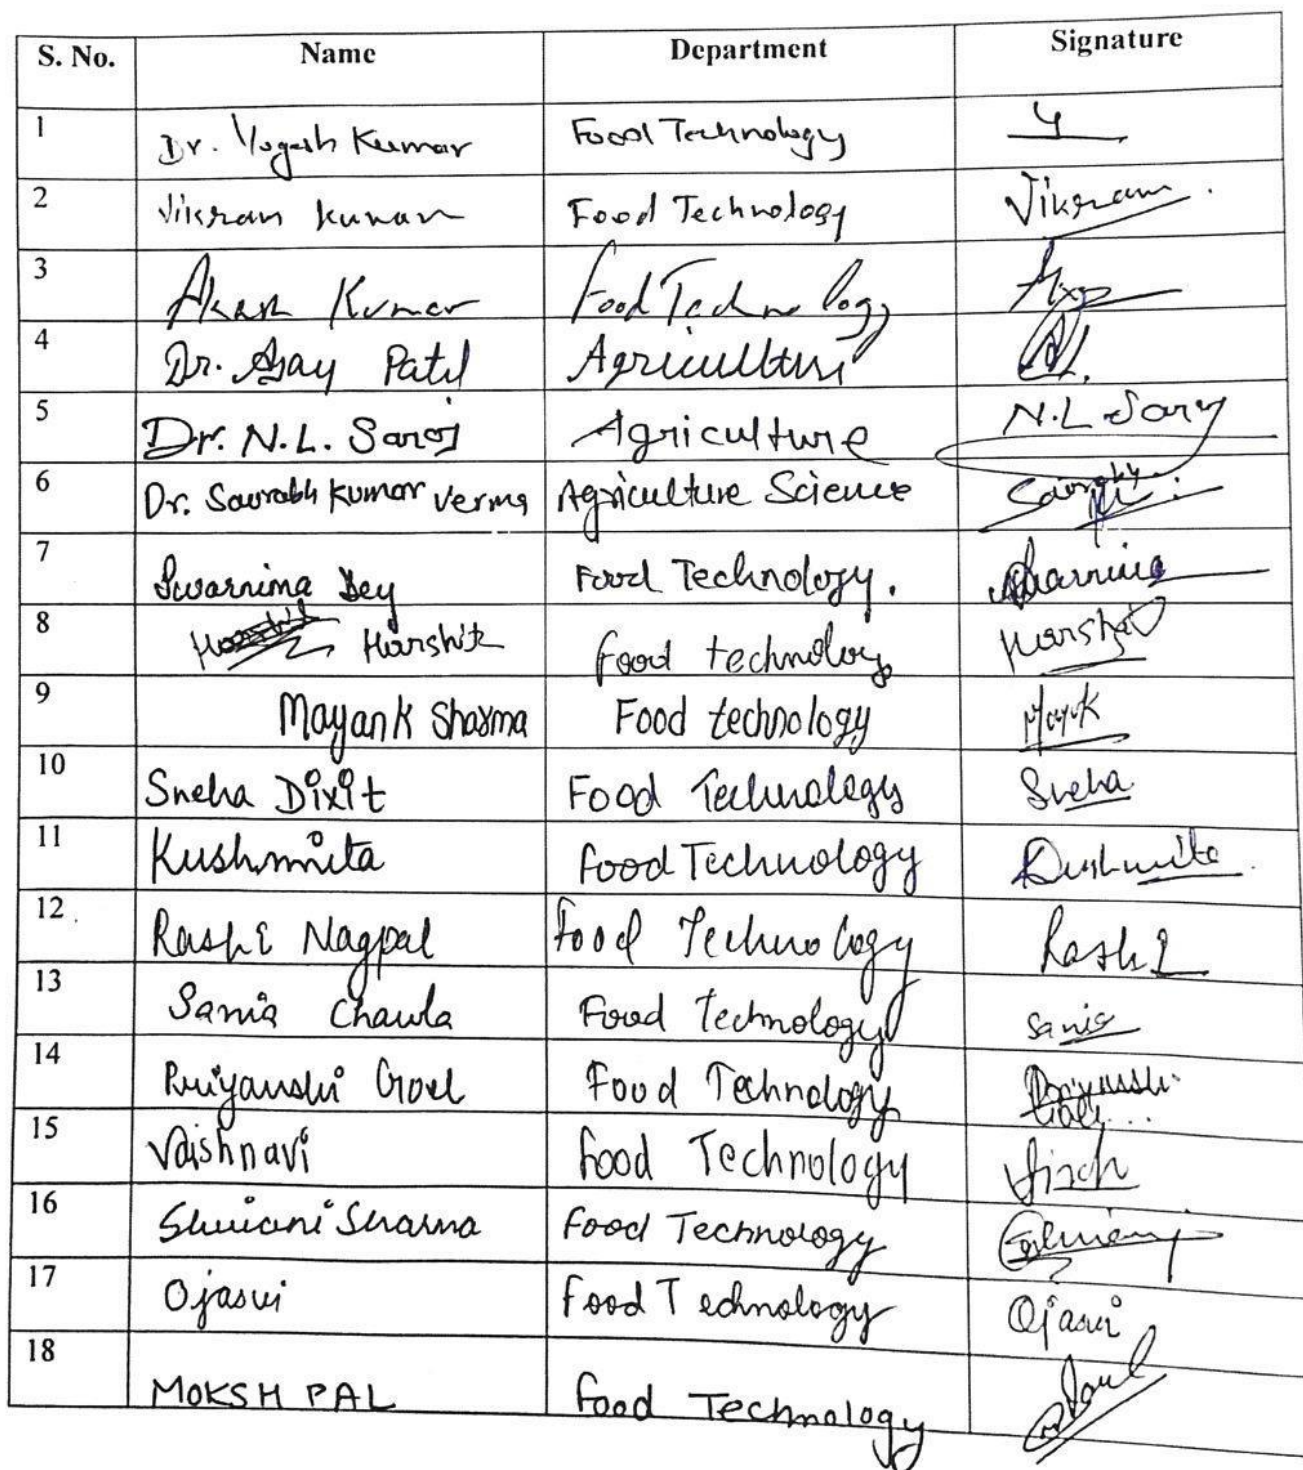 S. No. Name Department Signature
1 Dr. Yogesh Kumar Food Technology
2 Vikram Kumar Food Technology Vikram
3 Akash Kumar Food Technology
4 Dr. Ajay Patil Agriculture
5 Dr. N.L. Saroj Agriculture N.L Saroj
6 Dr. Saurabh Kumar Verma Agriculture Science Saurabh
7 Swarnima Dey Food Technology. Swarnima
8 Harshit Food technology Harshit
9 Mayank Sharma Food technology Mayank
10 Sneha Dixit Food Technology Sneha
11 Kushmita Food Technology Kushmita
12 Rashi Nagpal Food Technology Rashi
13 Sania Chawla Food Technology Sania
14 Priyanshi Goel Food Technology Priyanshi Goel
15 Vaishnavi Food Technology
16 Shivani Sharma Food Technology Shivani
17 Ojasvi Food Technology Ojasvi
18 MOKSH PAL Food Technology